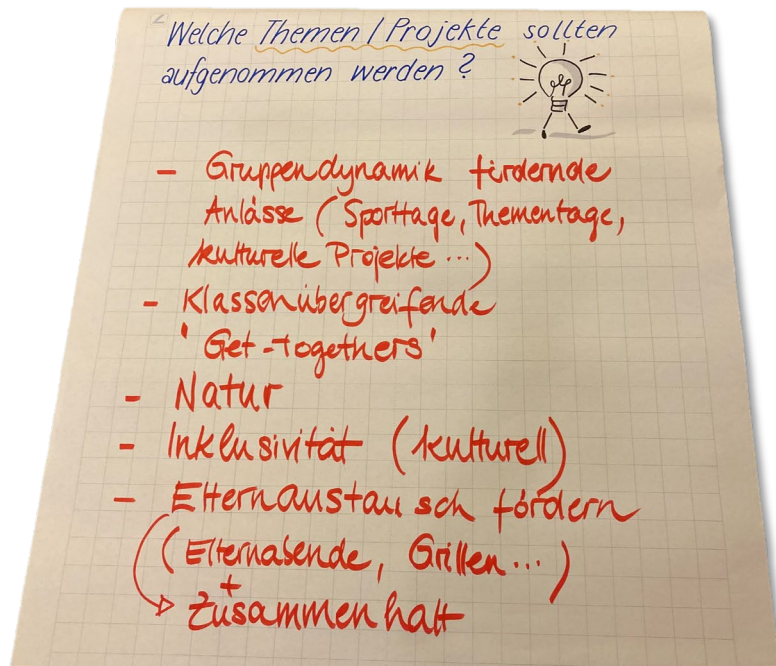 Welche Themen / Projekte sollten
aufgenommen werden ?
- Gruppendynamik fördernde
Anlässe ( Sporttage, Thementage,
kulturelle Projekte ... )
- Klassenübergreifende
' Get-togethers '
- Natur
- Inklusivität ( kulturell )
- Elternaustausch fördern
( Elternabende, Grillen ... )
+
Zusammenhalt